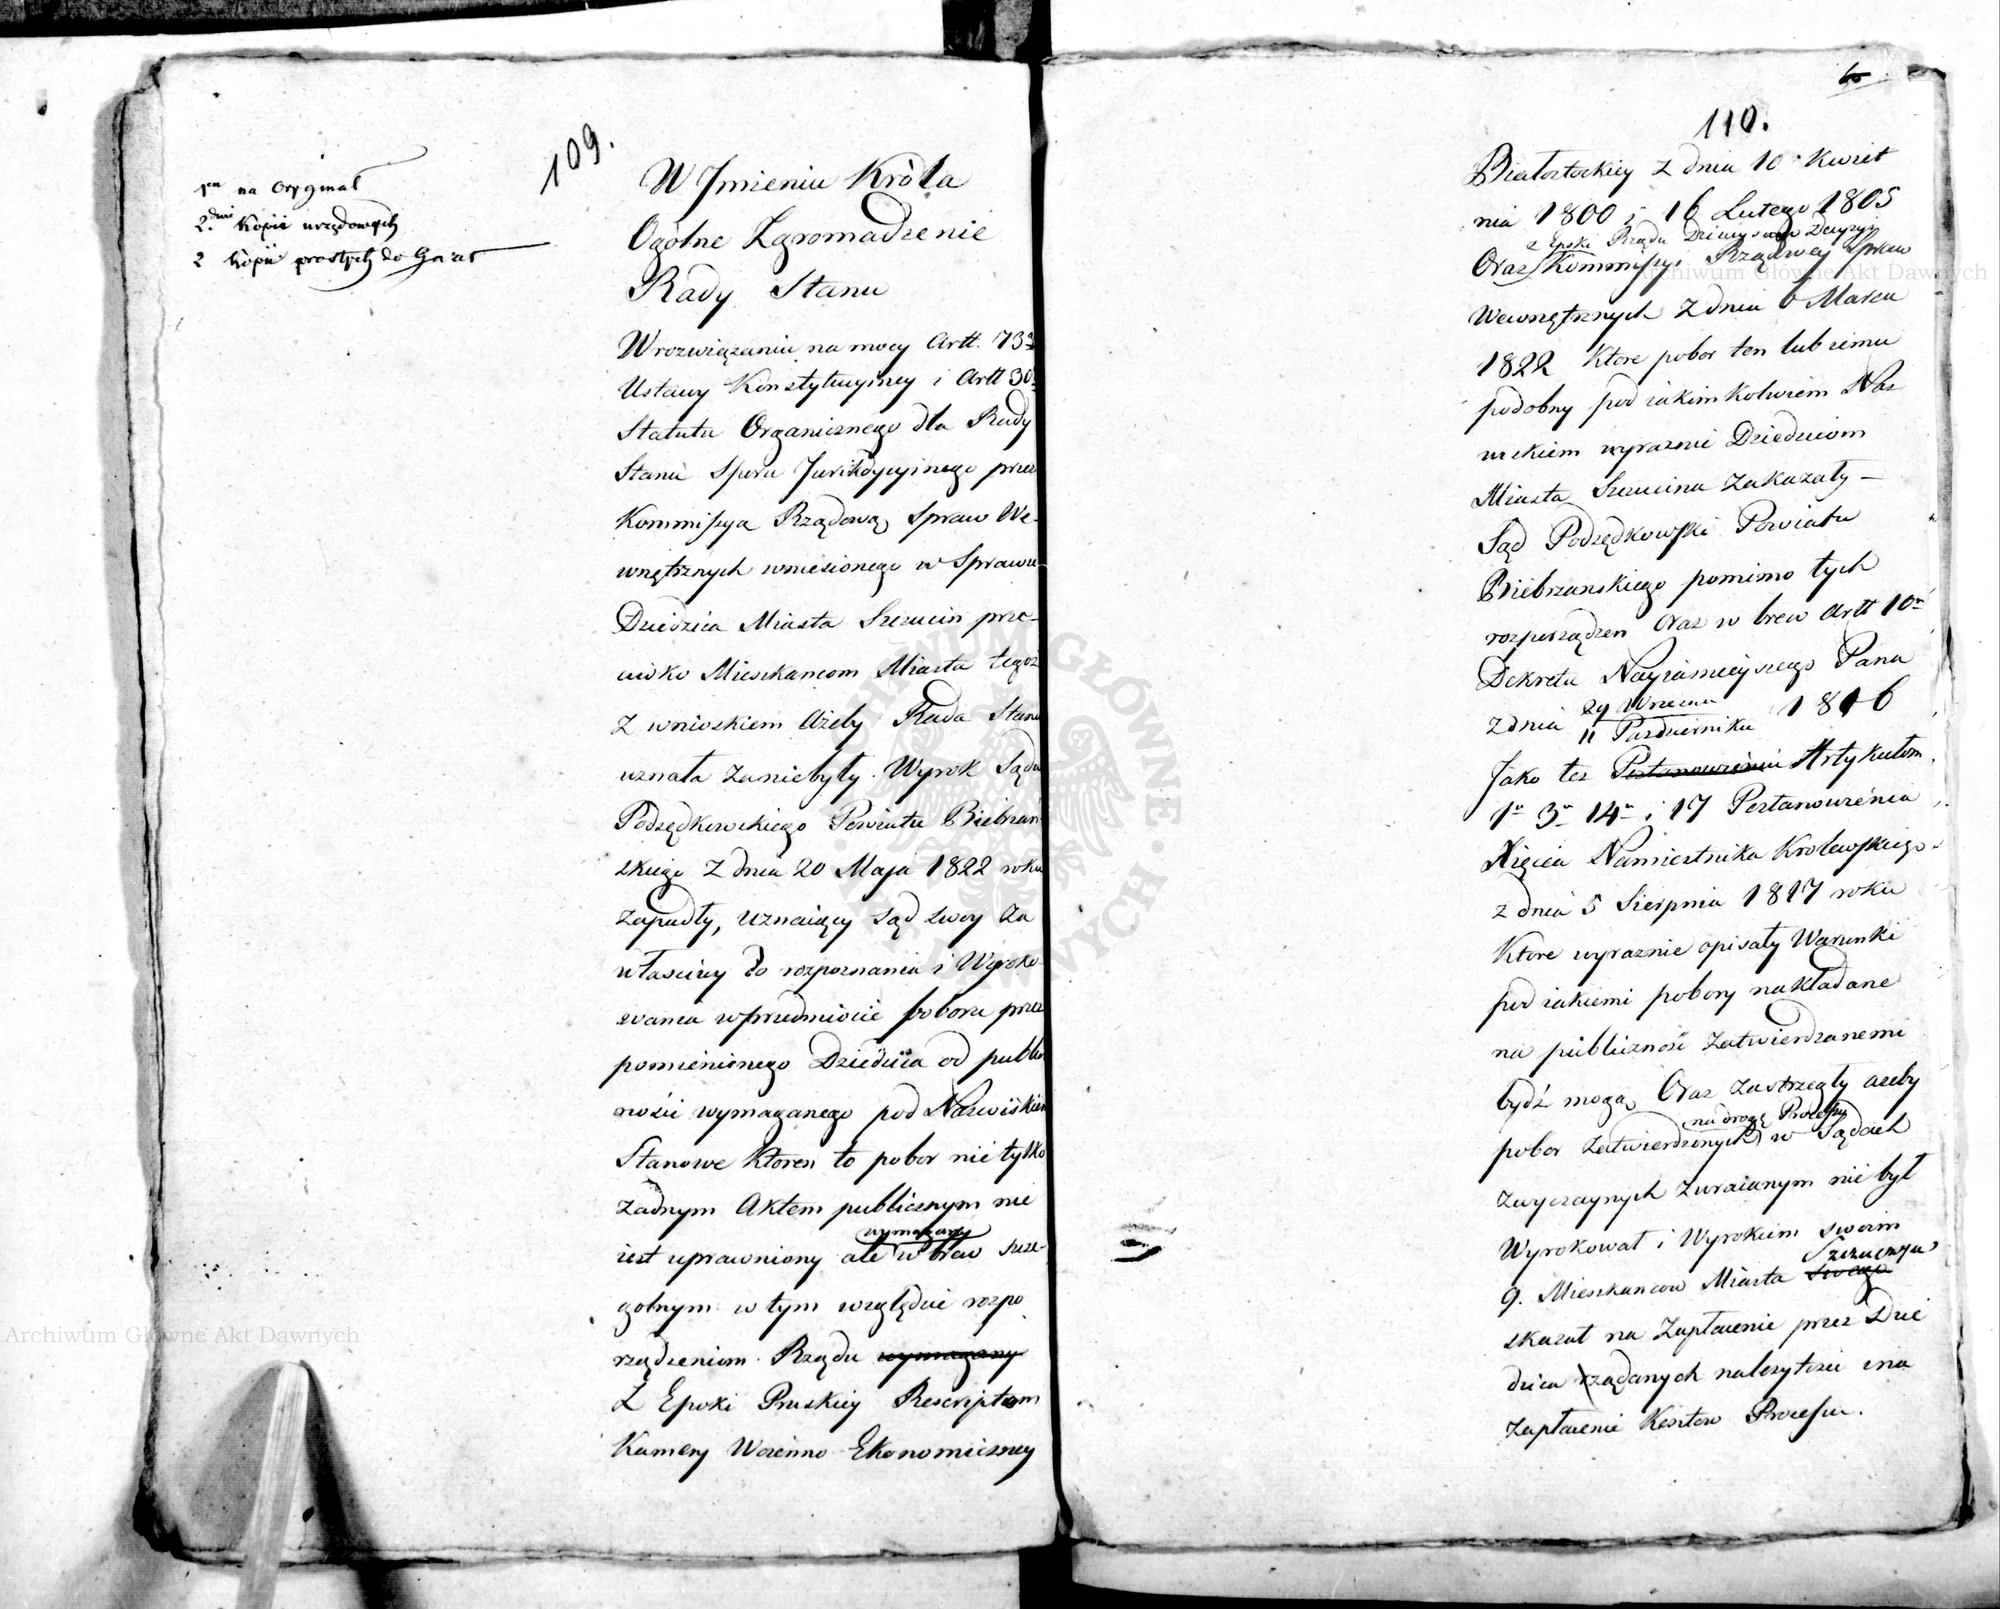 109.
1en na Oryginał
2. dwie Kopii urzędowych
2 Kopii prostych do
W Jmieniu Króla
Ogólne Zgromadzenie
Rady Stanu
W rozwiązaniu na mocy Artt. 73go
Ustawy Konstytucyiney i Artt 30
Statutu Organicznego dla Rady
Stanu Sporu Jurisdycyinego przez
Kommissya Rządową Spraw We-
wnętrznych wniesionego w Sprawie
Dziedzica Miasta Szczucin prze-
ciwko Mieszkancom Miasta tegoż
z wnioskiem Ażeby Rada Stanu
uznała zaniebyły Wyrok Sądu
Podsędkowskiego Powiatu Biebrzań
skiego z dnia 20 Maja 1822 roku
zapadły, uznaiący sąd swoy za
właściwy do rozpoznania i Wyroko-
wania w przedmiocie poboru przez
pomienionego Dziedzica od publi
ności wymaganego pod Nazwiskiem
Stanowe Ktoren to pobor nie tylko
żadnym Aktem publicznym nie
wymagany
iest uprawniony ale w brew szcze-
golnym w tym względzie rozpo
rządzeniom Rządu wymagany
z Epoki Pruskiey Rescryptom
Kamery Woienno Ekonomiczney
110.
Białostockiey z dnia 10 Kwiet
nia 1800 i 16 Lutego 1805
z Epoki Rządu Dzieyszego Decyzyi
Oraz Kommissyi Rządowey Spraw
Wewnętrznych z dnia 6 Marca
1822 Ktore pobor ten lub iemu
podobny pod iakimkolwiem Naz
wiskiem wyraznie Dziedzicom
Miasta Szczucina zakazały –
Sąd Podsędkowski Powiatu
Biebrzanskiego pomimo tych
rozporządzen Oraz w brew Artt 10o
Dekretu Nayiasnieyszego Pana
z dnia 29 Wrzesnia 1816
11 Pazdziernika
Jako tez Postanowieniu Artykułom
1o 3o 14o i 17 Postanowienia
Xięcia Namiestnika Krolewskiego
z dnia 5 Sierpnia 1817 roku
Ktore wyraznie opisały Warunki
pod iakiemi pobory nakładane
na publiczność zatwierdzanemi
bydź mogą, Oraz zastrzegły ażeby
na drogę Processu
pobor zatwierdzonych w Sądach
zwyczaynych zwracanym nie był
Wyrokował i Wyrokiem swoim
Szczuczyna
9. Mieszkancow Miasta swego
skazał na zapłacenie przez Dzie
dzica rządanych należytości i na
zapłacenie Kosztow Processu.